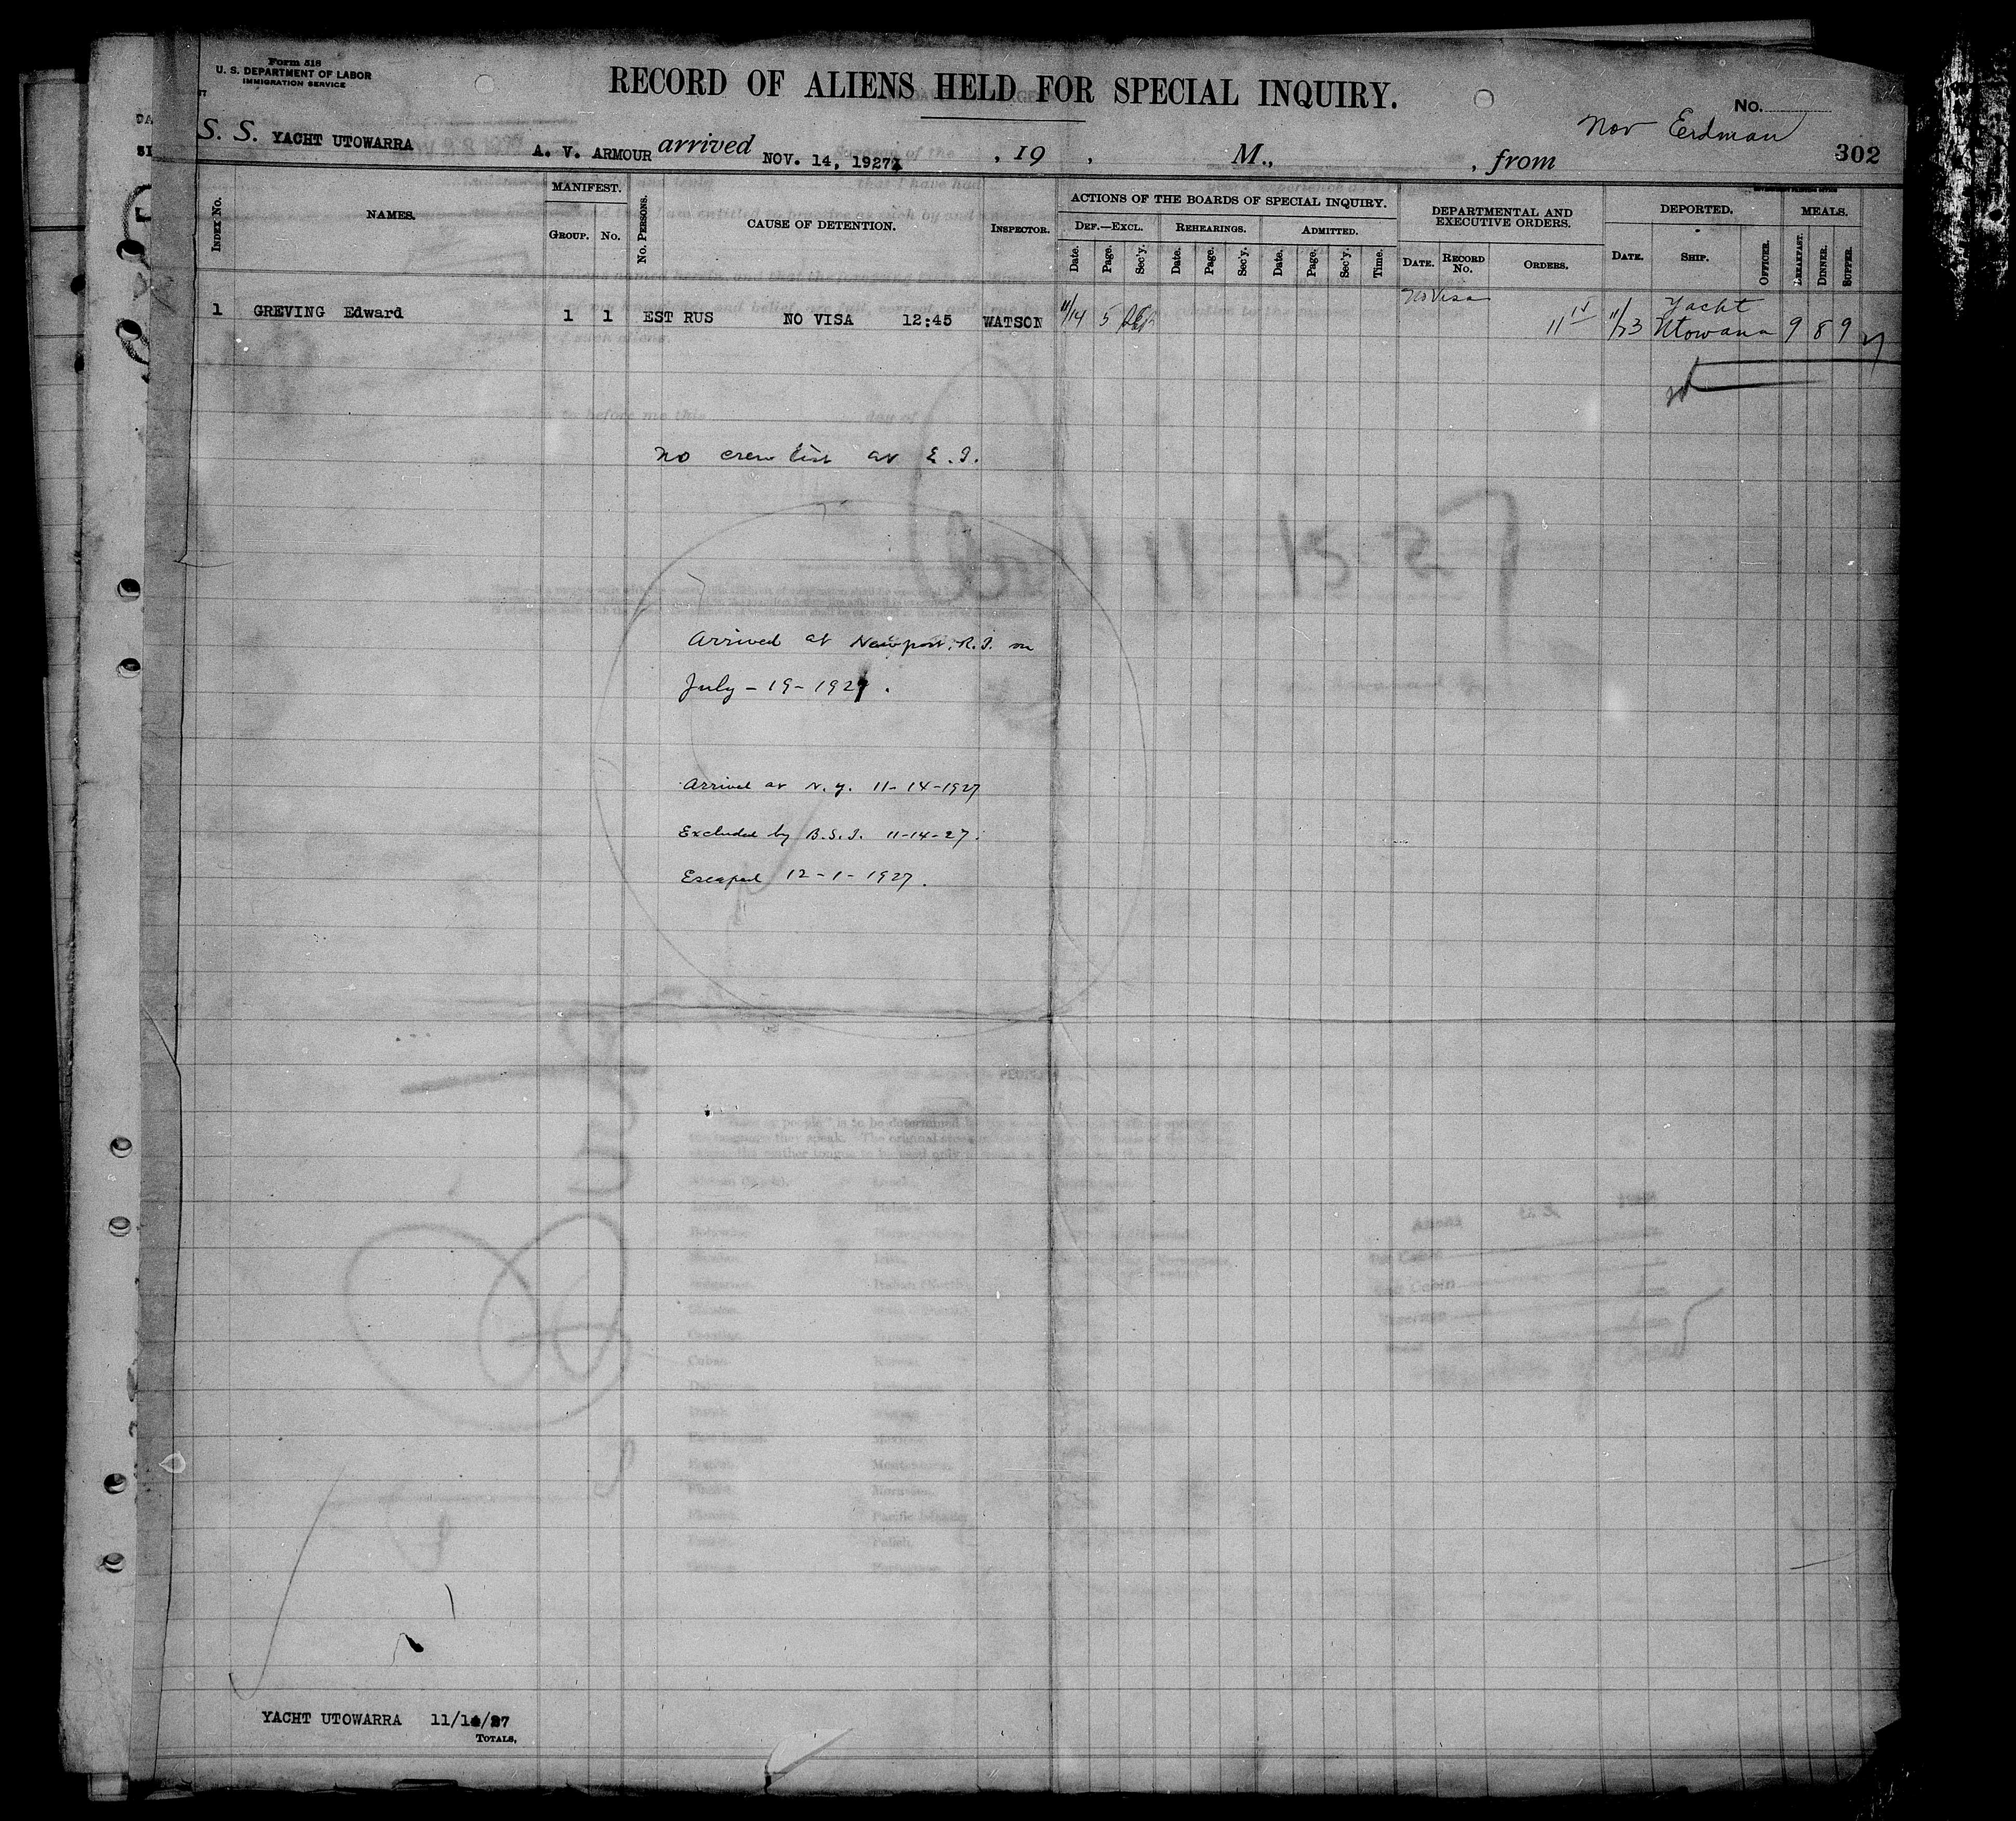 Form 518
U. S. DEPARTMENT OF LABOR
IMMIGRATION SERVICE
RECORD OF ALIENS HELD FOR SPECIAL INQUIRY.
No.
Nov Erdman
302
S. S. YACHT UTOWARRA A. V. ARMOUR arrived NOV. 14, 1927 , 19 , M., , from
INDEX No. NAMES. MANIFEST. GROUP. No. No. PERSONS. CAUSE OF DETENTION. INSPECTOR.
ACTIONS OF THE BOARDS OF SPECIAL INQUIRY.
DEF.—EXCL. REHEARINGS. ADMITTED.
Date. Page. Sec'y. Date. Page. Sec'y. Date. Page. Sec'y. Time.
DEPARTMENTAL AND EXECUTIVE ORDERS.
DATE. RECORD No. ORDERS.
DEPORTED.
DATE. SHIP. OFFICER.
MEALS.
BREAKFAST. DINNER. SUPPER.
No Visa
1 GREVING Edward 1 1 EST RUS NO VISA 12:45 WATSON 11/14 5 11/23 Yacht Utowana 9 8 9
no crew list at E. I.
Arrived at Newport. R.I. on
July - 19 - 1927.
Arrived at N. Y. 11-14-1927
Excluded by B.S.I. 11-14-27.
Escaped 12-1-1927.
YACHT UTOWARRA 11/14/27
TOTALS.